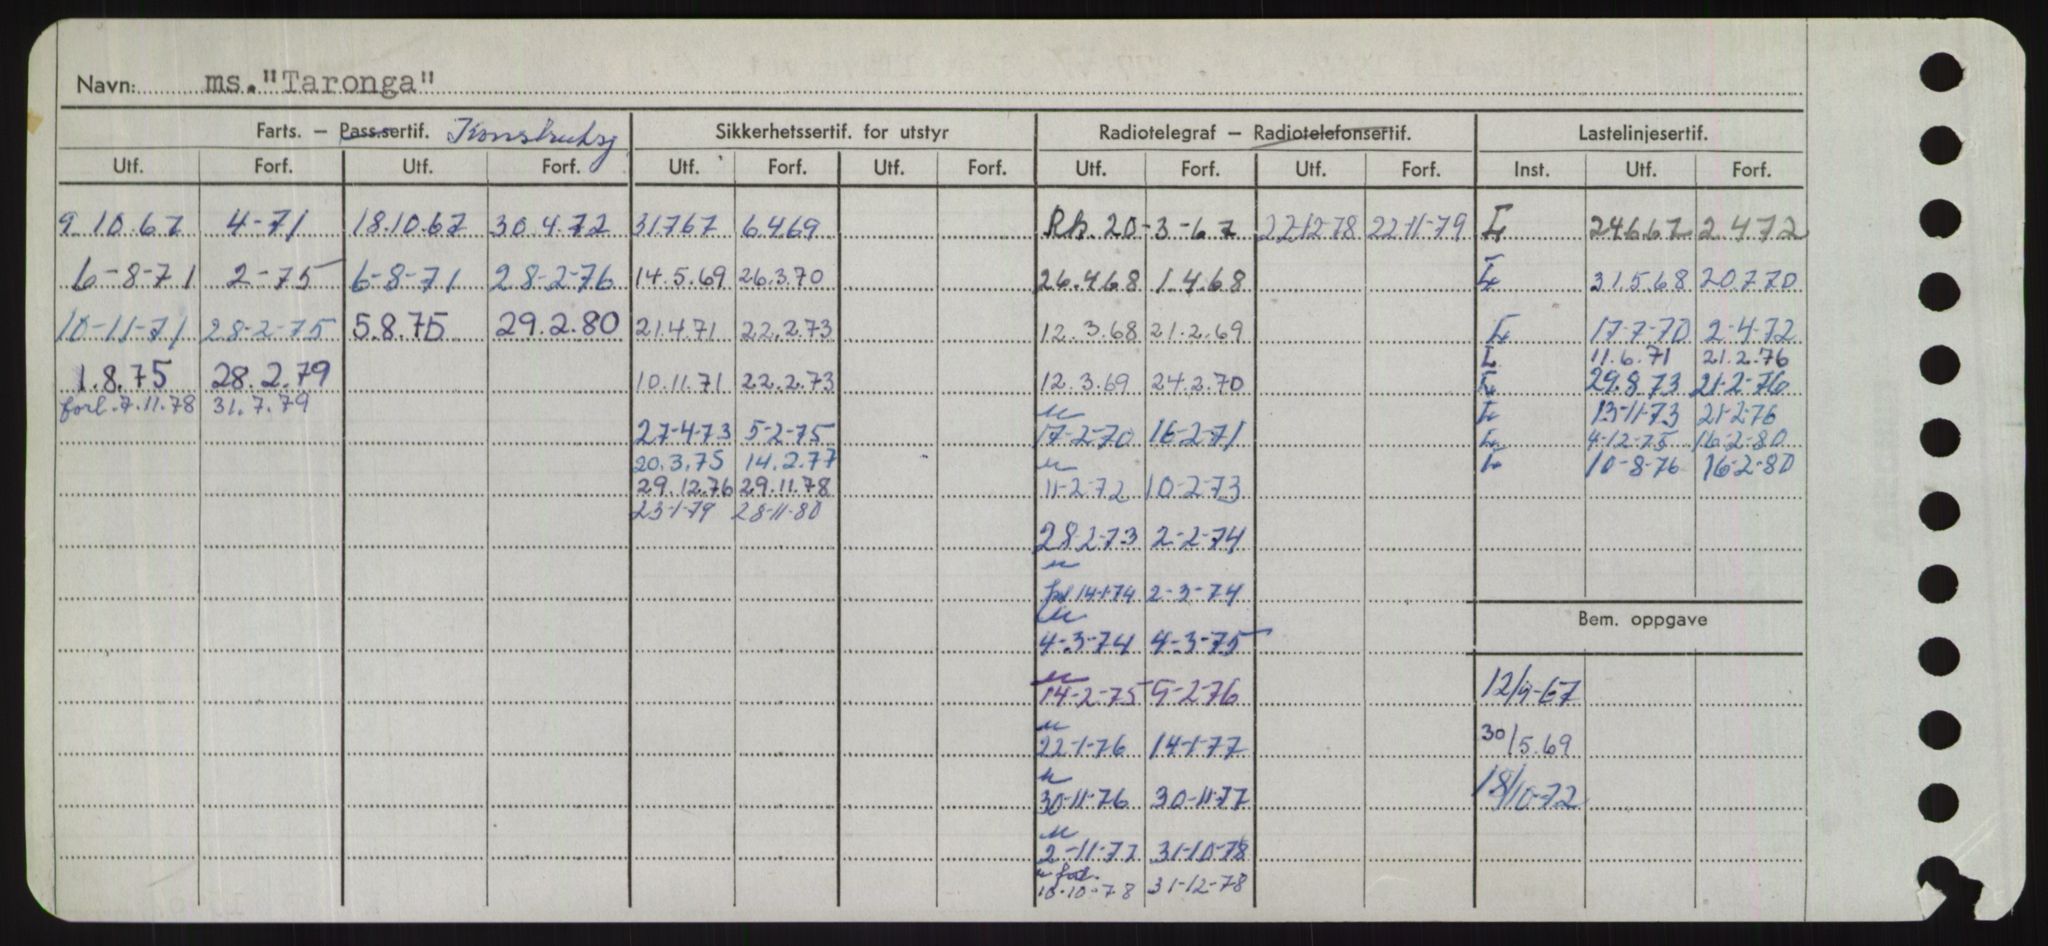 Navn: ms."Taronga"
Farts. – Pass.sertif. Konstruksj Sikkerhetssertif. for utstyr Radiotelegraf – Radiotelefonsertif. Lastelinjesertif.
Utf. Forf. Utf. Forf. Utf. Forf. Utf. Forf. Utf. Forf. Utf. Forf. Inst. Utf. Forf.
9.10.67 4-71 18.10.67 30.4.72 31767 6.469 Rh. 20-3-67 22-12-78 22-11-79 Ł 24667 2472
6-8-71 2-75 6-8-71 28-2-76 14.5.69 26.3.70 26.4.68 1.4.68 Ł 31.5.68 20.7.70
10-11-71 28-2-75 5.8.75 29.2.80 21.4.71 22.2.73 12.3.68 21.2.69 Ł 17-7-70 2-4-72
Ł 11.6.71 21.2.76
1.8.75 28.2.79 10.11.71 22.2.73 12.3.69 24.2.70 Ł 29.8.73 21-2-76
forl. 7.11.78 31.7.79 Ł 13-11-73 21-2-76
27-4-73 5-2-75 17-2-70 16-2-71 Ł 4-12-75 16-2-80
20.3.75 14.2.77 Ł 10-8-76 16-2-80
29.12.76 29.11.78 11-2-72 10-2-73
23-1-79 28-11-80
28.2-73 2-2-74
14-1-74 2-3-74
Bem. oppgave
4-3-74 4-3-75
14-2-75 9-2-76 12/9-67
22-1-76 14-1-77 30/5.69
30-11-76 30-11-77 18/10-72
2-11-77 31-10-78
10-10-78 31-12-78